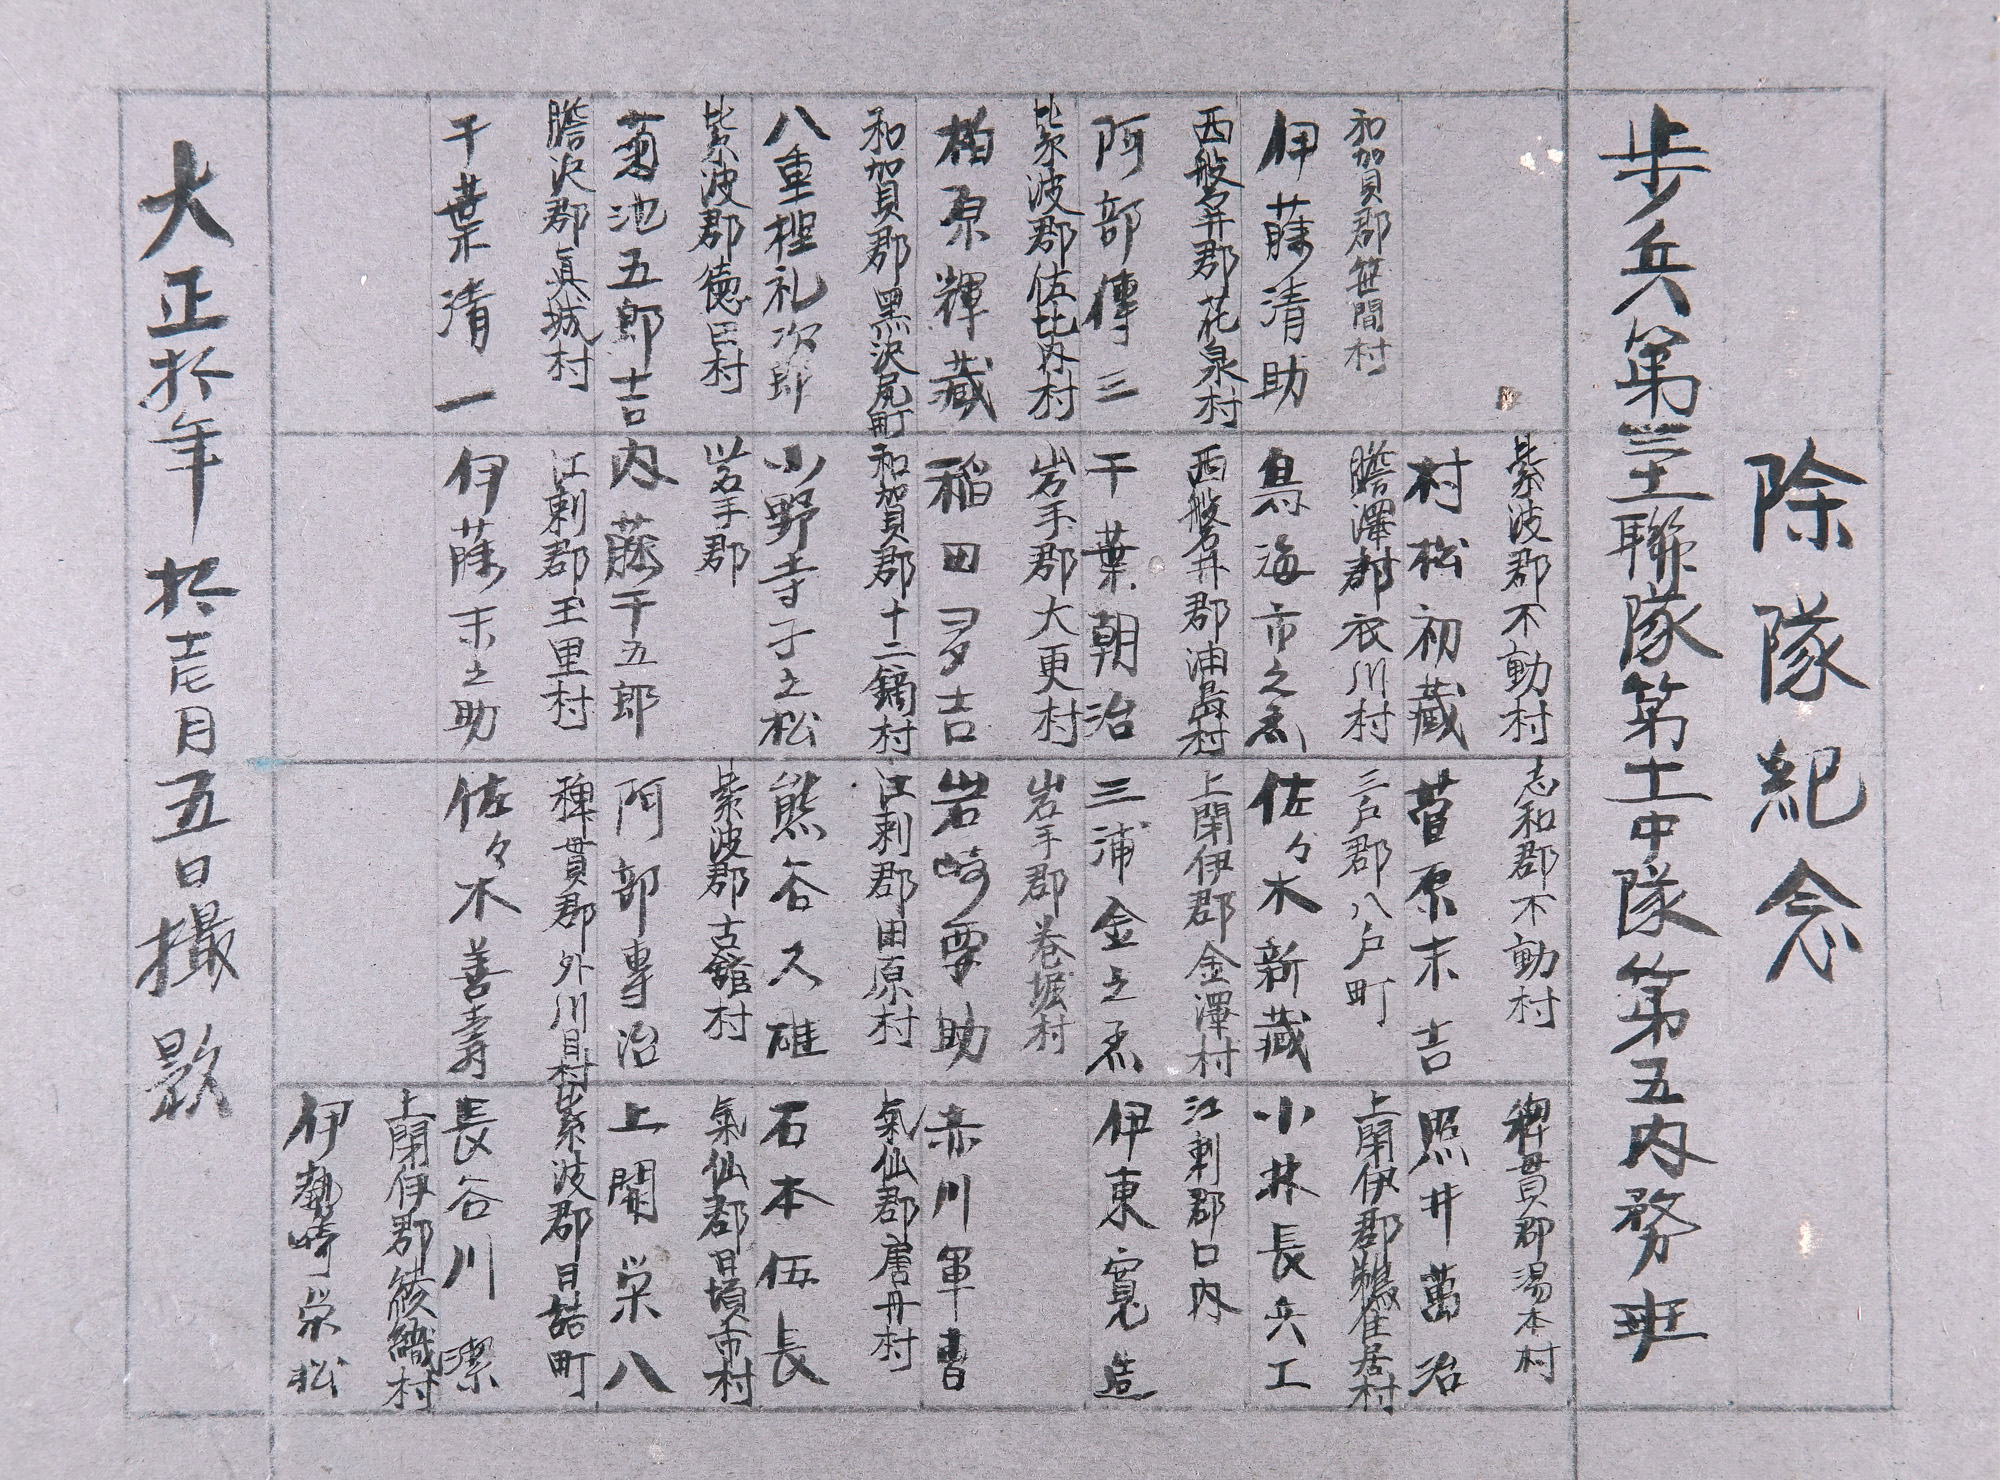 除隊紀念
歩兵第三十一聯隊第十一中隊第五内務班
和賀郡笹間村
伊藤清助
西磐井郡花泉村
阿部傳三
紫波郡佐比内村
柏原輝藏
和賀郡黒沢尻町
八重樫礼次郎
紫波郡徳田村
菊池五郎吉
膽沢郡眞城村
千葉清一
紫波郡不動村
村松初藏
膽澤郡衣川村
鳥海市之烝
西磐井郡油島村
千葉朝治
岩手郡大更村
稲田多吉
和賀郡十二鏑村
小野寺子之松
岩手郡
内藤千五郎
江刺郡玉里村
伊藤末之助
志和郡不動村
菅原末吉
三戸郡八戸町
佐々木新藏
上閉伊郡金澤村
三浦金之烝
岩手郡巻堀村
岩崎要助
江刺郡田原村
熊谷久雄
紫波郡古舘村
阿部専治
稗貫郡外川目村
佐々木善壽
稗貫郡湯本村
照井萬治
上閉伊郡鵜住居村
小林長兵工
江刺郡口内
伊東寛造
赤川軍曹
氣仙郡唐丹村
石本伍長
氣仙郡日頃市村
上開栄八
紫波郡日詰町
長谷川潔
上閉伊郡綾織村
伊勢崎栄松
大正拾年拾壱月五日撮影